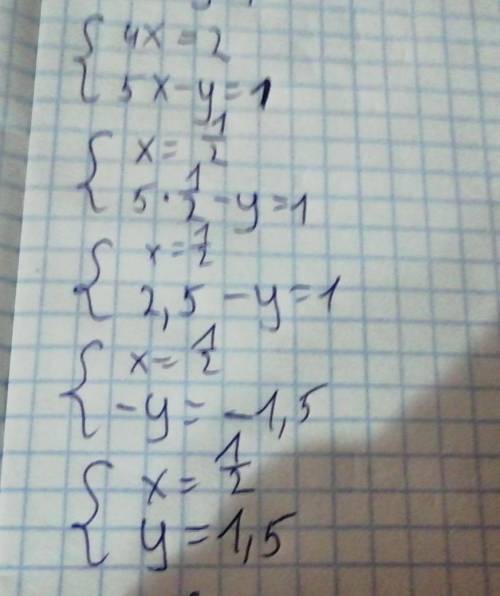 { 4x = 2
5x - y = 1
{ x = 1/2
5 · 1/2 - y = 1
{ x = 1/2
2,5 - y = 1
{ x = 1/2
-y = -1,5
{ x = 1/2
y = 1,5